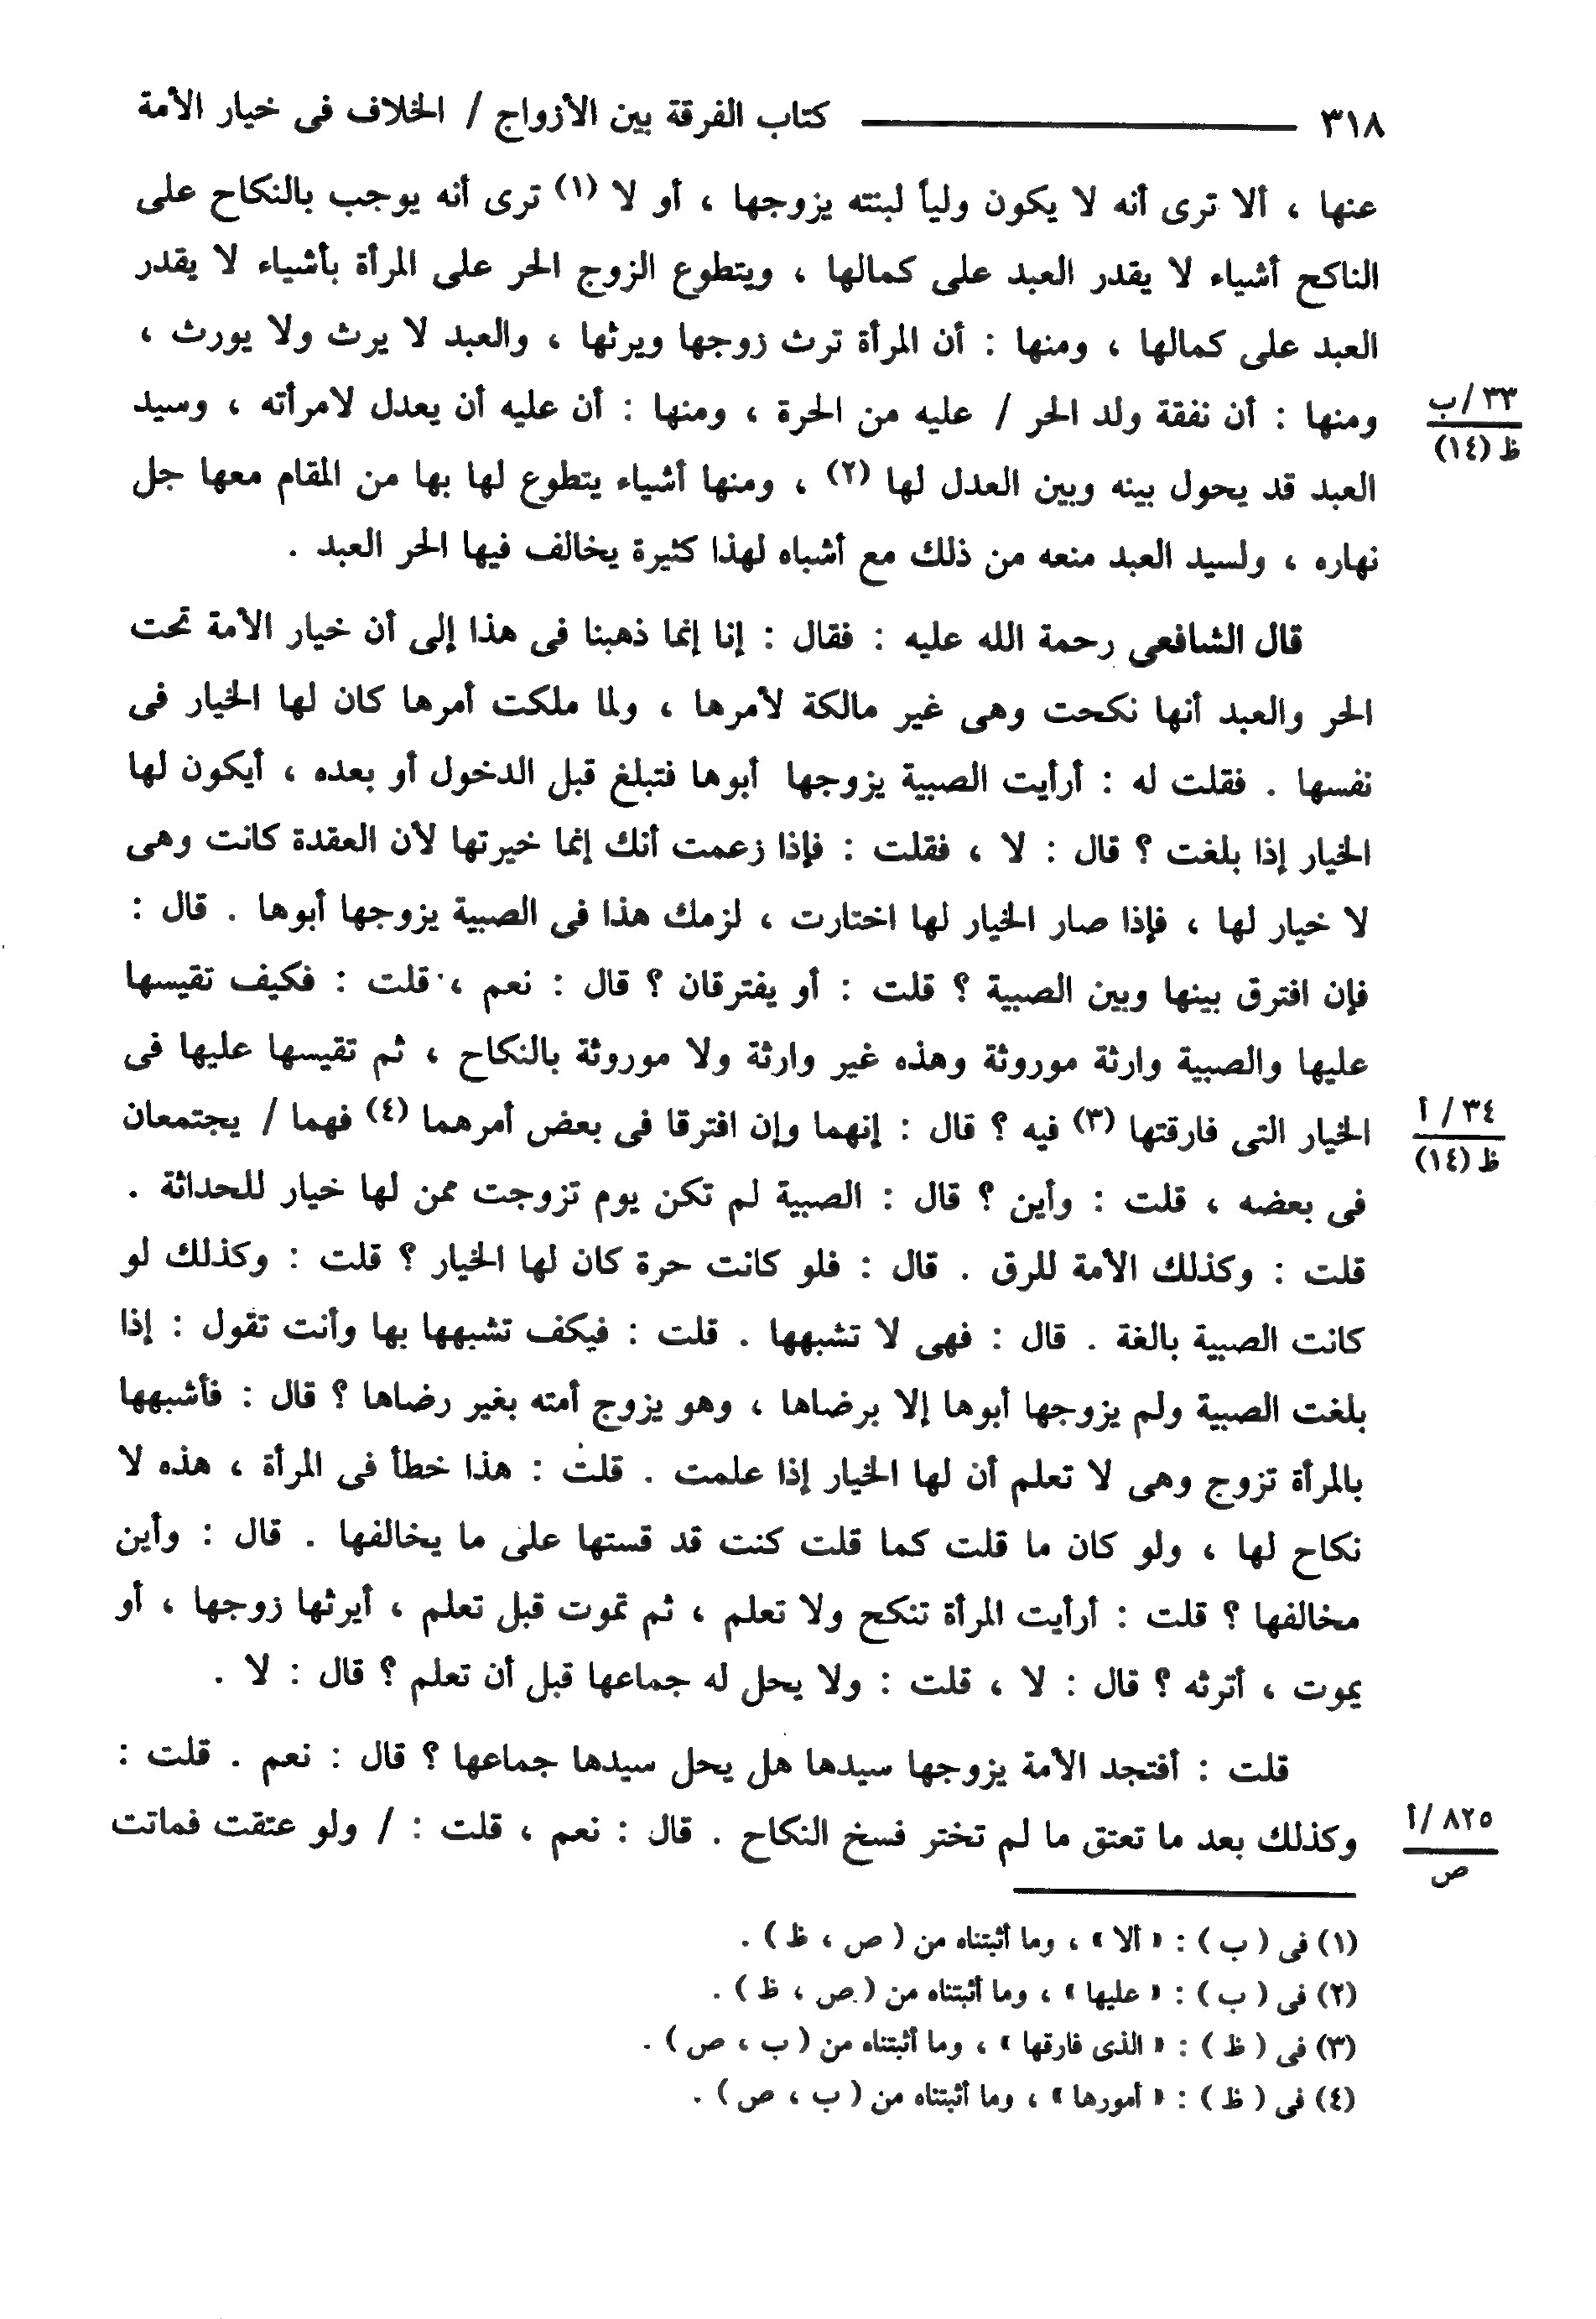 ٣١٨ ــــــــــ كتاب الفرقة بين الأزواج / الخلاف فى خيار الأمة
عنها ، ألا ترى أنه لا يكون ولياً لبنته يزوجها ، أو لا (١) ترى أنه يوجب بالنكاح على
الناكح أشياء لا يقدر العبد على كمالها ، ويتطوع الزوج الحر على المرأة بأشياء لا يقدر
العبد على كمالها ، ومنها : أن المرأة ترث زوجها ويرثها ، والعبد لا يرث ولا يورث ،
ومنها : أن نفقة ولد الحر / عليه من الحرة ، ومنها : أن عليه أن يعدل لامرأته ، وسيد
٣٣ /ب
ظ (١٤)
العبد قد يحول بينه وبين العدل لها (٢) ، ومنها أشياء يتطوع لها بها من المقام معها جل
نهاره ، ولسيد العبد منعه من ذلك مع أشباه لهذا كثيرة يخالف فيها الحر العبد .
قال الشافعى رحمة الله عليه : فقال : إنا إنما ذهبنا فى هذا إلى أن خيار الأمة تحت
الحر والعبد أنها نكحت وهى غير مالكة لأمرها ، ولما ملكت أمرها كان لها الخيار فى
نفسها . فقلت له : أرأيت الصبية يزوجها أبوها فتبلغ قبل الدخول أو بعده ، أيكون لها
الخيار إذا بلغت ؟ قال : لا ، فقلت : فإذا زعمت أنك إنما خيرتها لأن العقدة كانت وهى
لا خيار لها ، فإذا صار الخيار لها اختارت ، لزمك هذا فى الصبية يزوجها أبوها . قال :
فإن افترق بينها وبين الصبية ؟ قلت : أو يفترقان ؟ قال : نعم ، قلت : فكيف تقيسها
عليها والصبية وارثة موروثة وهذه غير وارثة ولا موروثة بالنكاح ، ثم تقيسها عليها فى
الخيار التى فارقتها (٣) فيه ؟ قال : إنهما وإن افترقا فى بعض أمرهما (٤) فهما / يجتمعان
٣٤ / أ
ظ (١٤)
فى بعضه ، قلت : وأين ؟ قال : الصبية لم تكن يوم تزوجت ممن لها خيار للحداثة .
قلت : وكذلك الأمة للرق . قال : فلو كانت حرة كان لها الخيار ؟ قلت : وكذلك لو
كانت الصبية بالغة . قال : فهى لا تشبهها . قلت : فيكف تشبهها بها وأنت تقول : إذا
بلغت الصبية ولم يزوجها أبوها إلا برضاها ، وهو يزوج أمته بغير رضاها ؟ قال : فأشبهها
بالمرأة تزوج وهى لا تعلم أن لها الخيار إذا علمت . قلت : هذا خطأ فى المرأة ، هذه لا
نكاح لها ، ولو كان ما قلت كما قلت كنت قد قستها على ما يخالفها . قال : وأين
مخالفها ؟ قلت : أرأيت المرأة تنكح ولا تعلم ، ثم تموت قبل تعلم ، أيرثها زوجها ، أو
يموت ، أترثه ؟ قال : لا ، قلت : ولا يحل له جماعها قبل أن تعلم ؟ قال : لا .
قلت : أفتجد الأمة يزوجها سيدها هل يحل سيدها جماعها ؟ قال : نعم . قلت :
وكذلك بعد ما تعتق ما لم تختر فسخ النكاح . قال : نعم ، قلت : / ولو عتقت فماتت
٨٢٥ /أ
ص
(١) فى ( ب ) : « ألا » ، وما أثبتناه من ( ص ، ظ ) .
(٢) فى ( ب ) : « عليها » ، وما أثبتناه من ( ص ، ظ ) .
(٣) فى ( ظ ) : « الذى فارقها » ، وما أثبتناه من ( ب ، ص ) .
(٤) فى ( ظ ) : « أمورها » ، وما أثبتناه من ( ب ، ص ) .